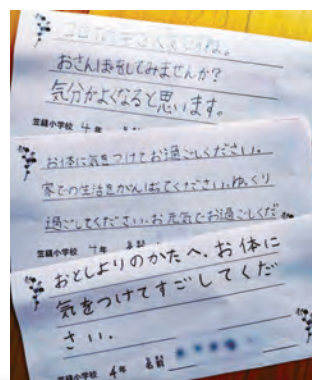 コロナ
おさんぽをしてみませんか?
気分がよくなると思います。
笠縫小学校 4年 名前
お体に気をつけてお過ごしください。
家での生活をがんばってください。ゆっくり
過ごしてください。お元気でお過ごしくだ
笠縫小学校 4年 名前
おとしよりのかたへ。お体に
気をつけてすごしてくだ
さい。
笠縫小学校 4年 名前